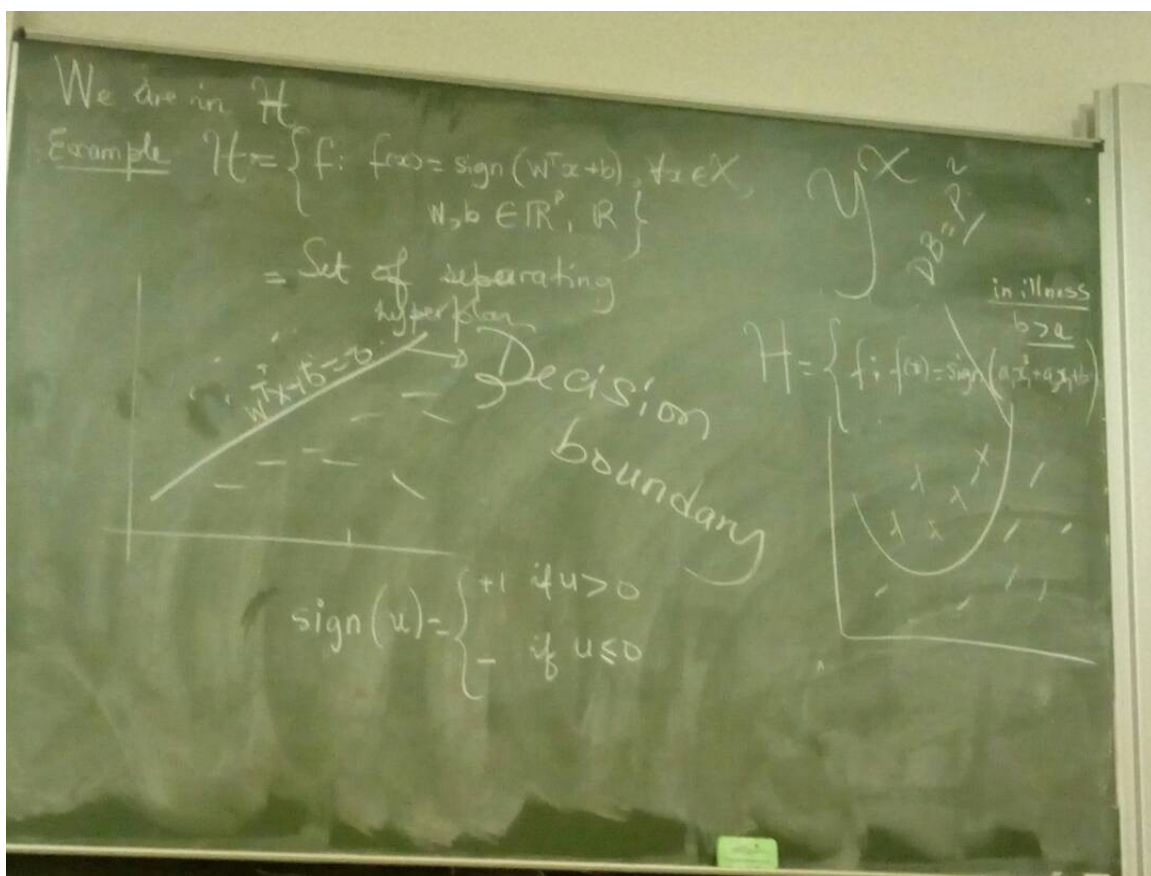 We are in H
Example H = { f: f(x) = sign (wᵀx+b), ∀x ∈ X,
w, b ∈ ℝᵖ, ℝ }
= Set of separating
hyperplan
wᵀx+b=0
Decision
boundary
sign(u) = { +1 if u > 0
- if u ≤ 0
y^X
in illness
b>a
H = { f: f(x) = sign (